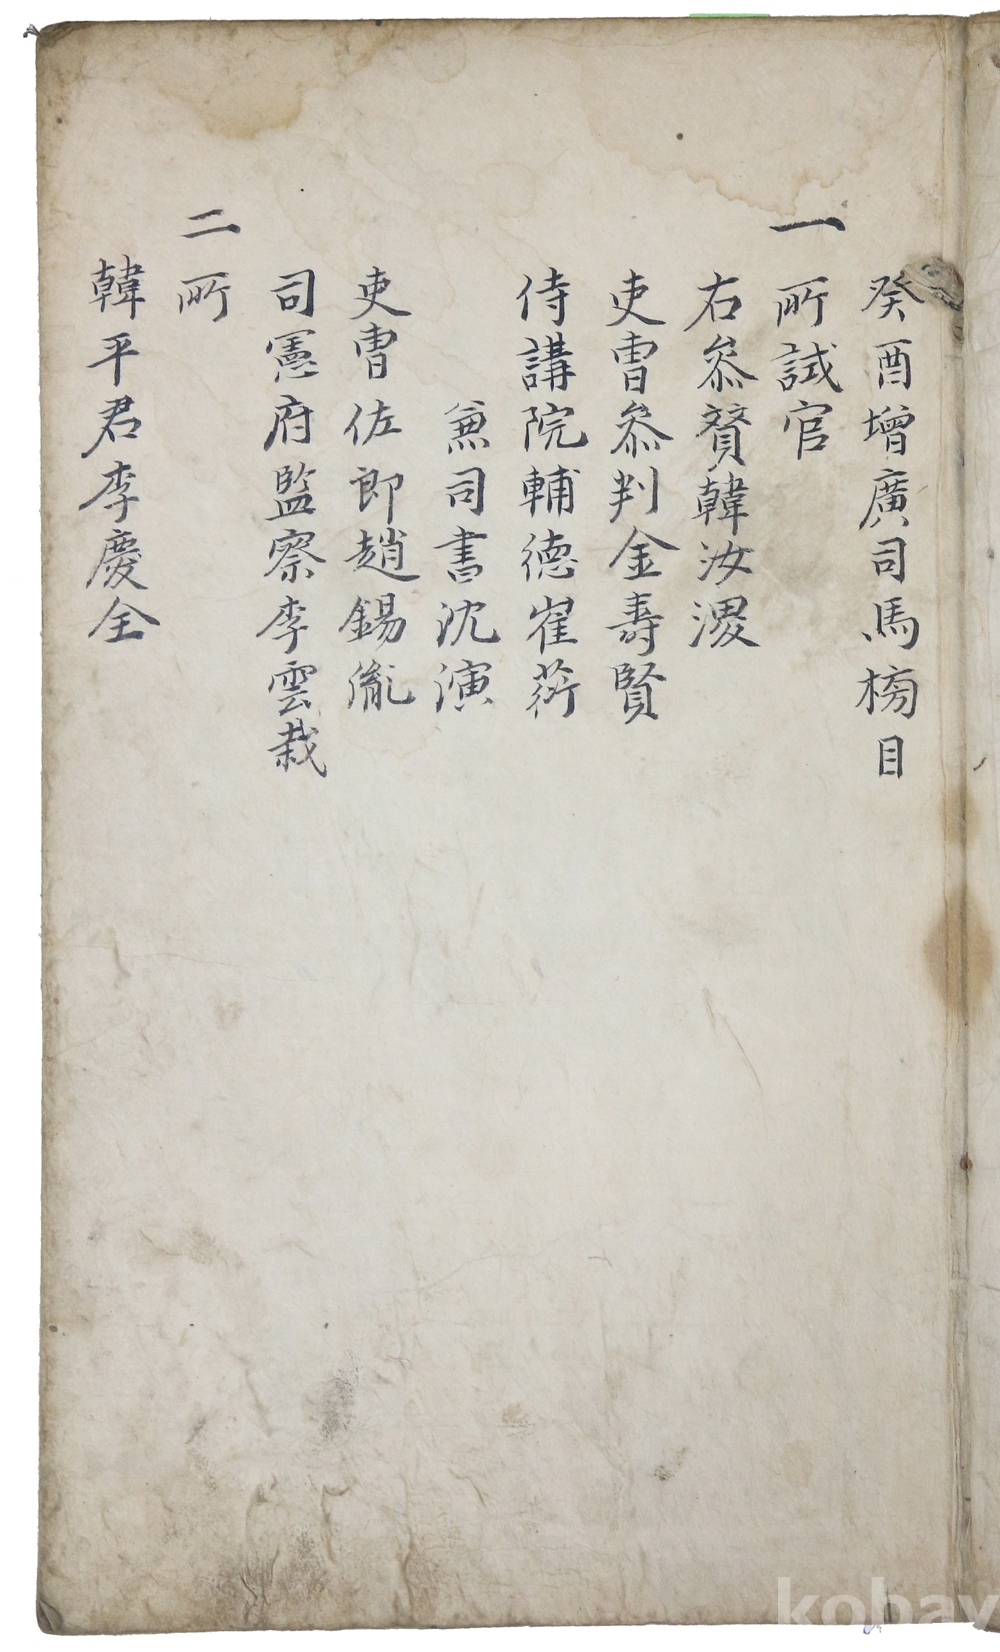 癸酉增廣司馬榜目
一所試官
右叅賛韓汝溭
吏曺叅判金壽賢
侍講院輔德崔葕
兼司書沈演
吏曺佐郎趙錫胤
司憲府監察李雲栽
二所
韓平君李慶全
kobay